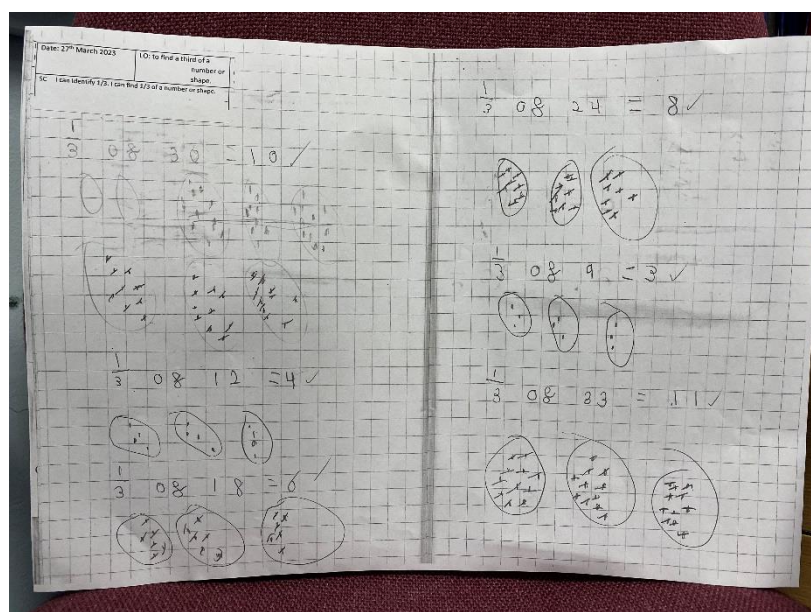 Date: 27th March 2023
LO: to find a third of a
number or
shape.
SC I can identify 1/3. I can find 1/3 of a number or shape.
1/3 of 30 = 10 ✓
1/3 of 12 = 4 ✓
1/3 of 18 = 6 ✓
1/3 of 24 = 8 ✓
1/3 of 9 = 3 ✓
1/3 of 33 = 11 ✓